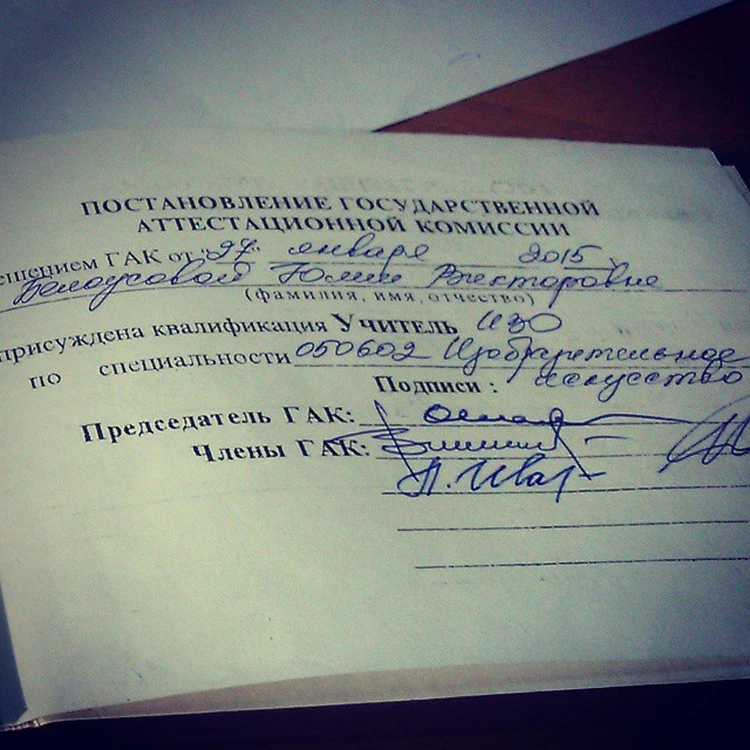 ПОСТАНОВЛЕНИЕ ГОСУДАРСТВЕННОЙ
АТТЕСТАЦИОННОЙ КОМИССИИ
ешением ГАК от "27" января 2015
Белоусовой Юлии Викторовне
(фамилия, имя, отчество)
присуждена квалификация Учитель ИЗО
по специальности 050602 Изобразительное
искусство
Подписи :
Председатель ГАК:
Члены ГАК: